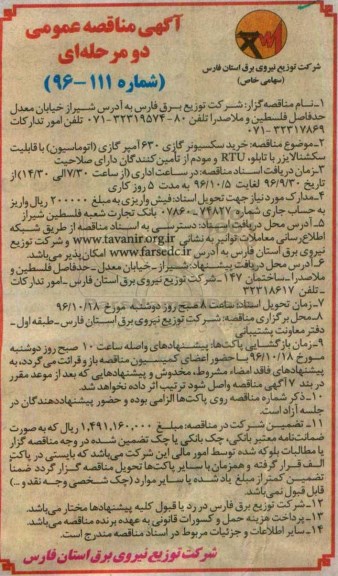 آگهی مناقصه عمومی
دو مرحله‌ای
(شماره ۱۱۱-۹۶)
شرکت توزیع نیروی برق استان فارس
(سهامی خاص)
۱-نام مناقصه گزار: شرکت توزیع برق فارس به آدرس شیراز خیابان معدل
حدفاصل فلسطین و ملاصدرا تلفن ۸۰-۳۲۳۱۹۵۷۴-۰۷۱ تلفن امور تدارکات
۰۷۱-۳۲۳۱۷۸۶۹
۲-موضوع مناقصه: خرید سکسیونر گازی ۶۳۰ آمپر گازی (اتوماسیون) با قابلیت
سکشنالایزر با تابلو، RTU و مودم از تأمین‌کنندگان دارای صلاحیت
۳-زمان دریافت اسناد مناقصه: در ساعت اداری (از ساعت ۷/۳۰ الی ۱۴/۳۰) از
تاریخ ۹۶/۹/۳۰ لغایت ۹۶/۱۰/۵ به مدت ۵ روز کاری
۴-مدارک مورد نیاز جهت تحویل اسناد: فیش واریزی به مبلغ ۲۰۰۰۰۰ ریال واریز
به حساب جاری شماره ۷۴۸۲۷-۰۷۸۶۰ بانک تجارت شعبه فلسطین شیراز
۵- آدرس محل دریافت اسناد: دسترسی به اسناد مناقصه از طریق شبکه
اطلاع‌رسانی معاملات توانیر به نشانی www.tavanir.org.ir و شرکت توزیع
نیروی برق استان فارس به آدرس www.farsedc.ir امکان‌پذیر می‌باشد.
۶-آدرس محل دریافت پیشنهاد: شیراز-خیابان معدل-حدفاصل فلسطین و
ملاصدرا-ساختمان ۱۴۷-شرکت توزیع نیروی برق استان فارس-امور تدارکات
-تلفن ۳۲۳۱۸۶۱۷
۷-زمان تحویل اسناد: ساعت ۸ صبح روز دوشنبه مورخ ۹۶/۱۰/۱۸
۸-محل برگزاری مناقصه: شرکت توزیع نیروی برق استان فارس-طبقه اول-
دفتر معاونت پشتیبانی
۹-زمان بازگشایی پاکت‌ها: پیشنهادهای واصله ساعت ۱۰ صبح روز دوشنبه
مورخ ۹۶/۱۰/۱۸ با حضور اعضای کمیسیون مناقصه باز و قرائت می‌گردد، به
پیشنهادهای فاقد امضاء، مشروط، مخدوش و پیشنهادهایی که بعد از موعد مقرر
در بند ۷ آگهی مناقصه واصل شود ترتیب اثر داده نخواهد شد.
۱۰-ذکر شماره مناقصه روی پاکت‌ها الزامی بوده و حضور پیشنهاددهندگان در
جلسه آزاد است.
۱۱-تضمین شرکت در مناقصه: مبلغ ۱,۴۹۱,۱۶۰,۰۰۰ ریال که به صورت
ضمانت‌نامه معتبر بانکی، چک بانکی یا چک تضمین شده در وجه مناقصه گزار
یا مطالبات بلوکه شده توسط امور مالی این شرکت می‌باشد که بایستی در پاکت
الف قرار گرفته و همزمان با سایر پاکت‌ها تحویل مناقصه گزار گردد ضمناً
تضمین کمتر از مبلغ یاد شده یا سایر موارد (چک شخصی وجه نقد و ...)
قابل قبول نمی‌باشد.
۱۲-شرکت توزیع برق فارس در رد یا قبول کلیه پیشنهادها مختار می‌باشد.
۱۳-پرداخت هزینه حمل و کسورات قانونی به عهده برنده مناقصه می‌باشد.
۱۴-سایر اطلاعات و جزئیات مربوط در اسناد مناقصه مندرج است.
شرکت توزیع نیروی برق استان فارس